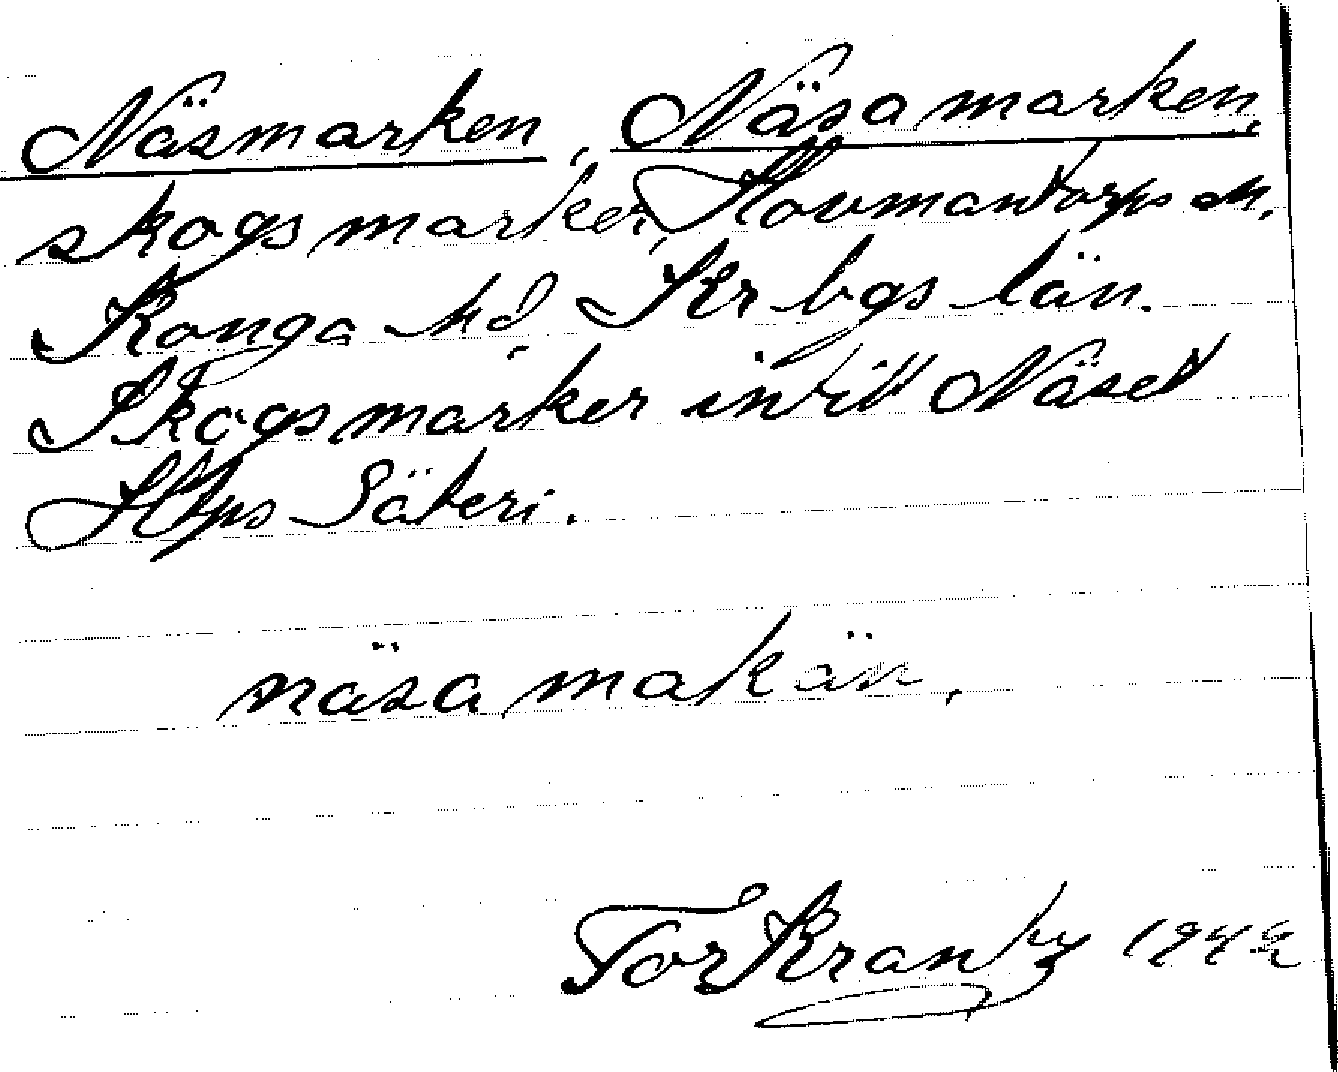 Näsmarken, Näsamarken,
skogsmarker, Hovmantorps sn.
Konga hd, Kr bgs län.
Skogsmarker intill Näset
Htps Säteri.
näsa makän.
Tor Krantz 1942